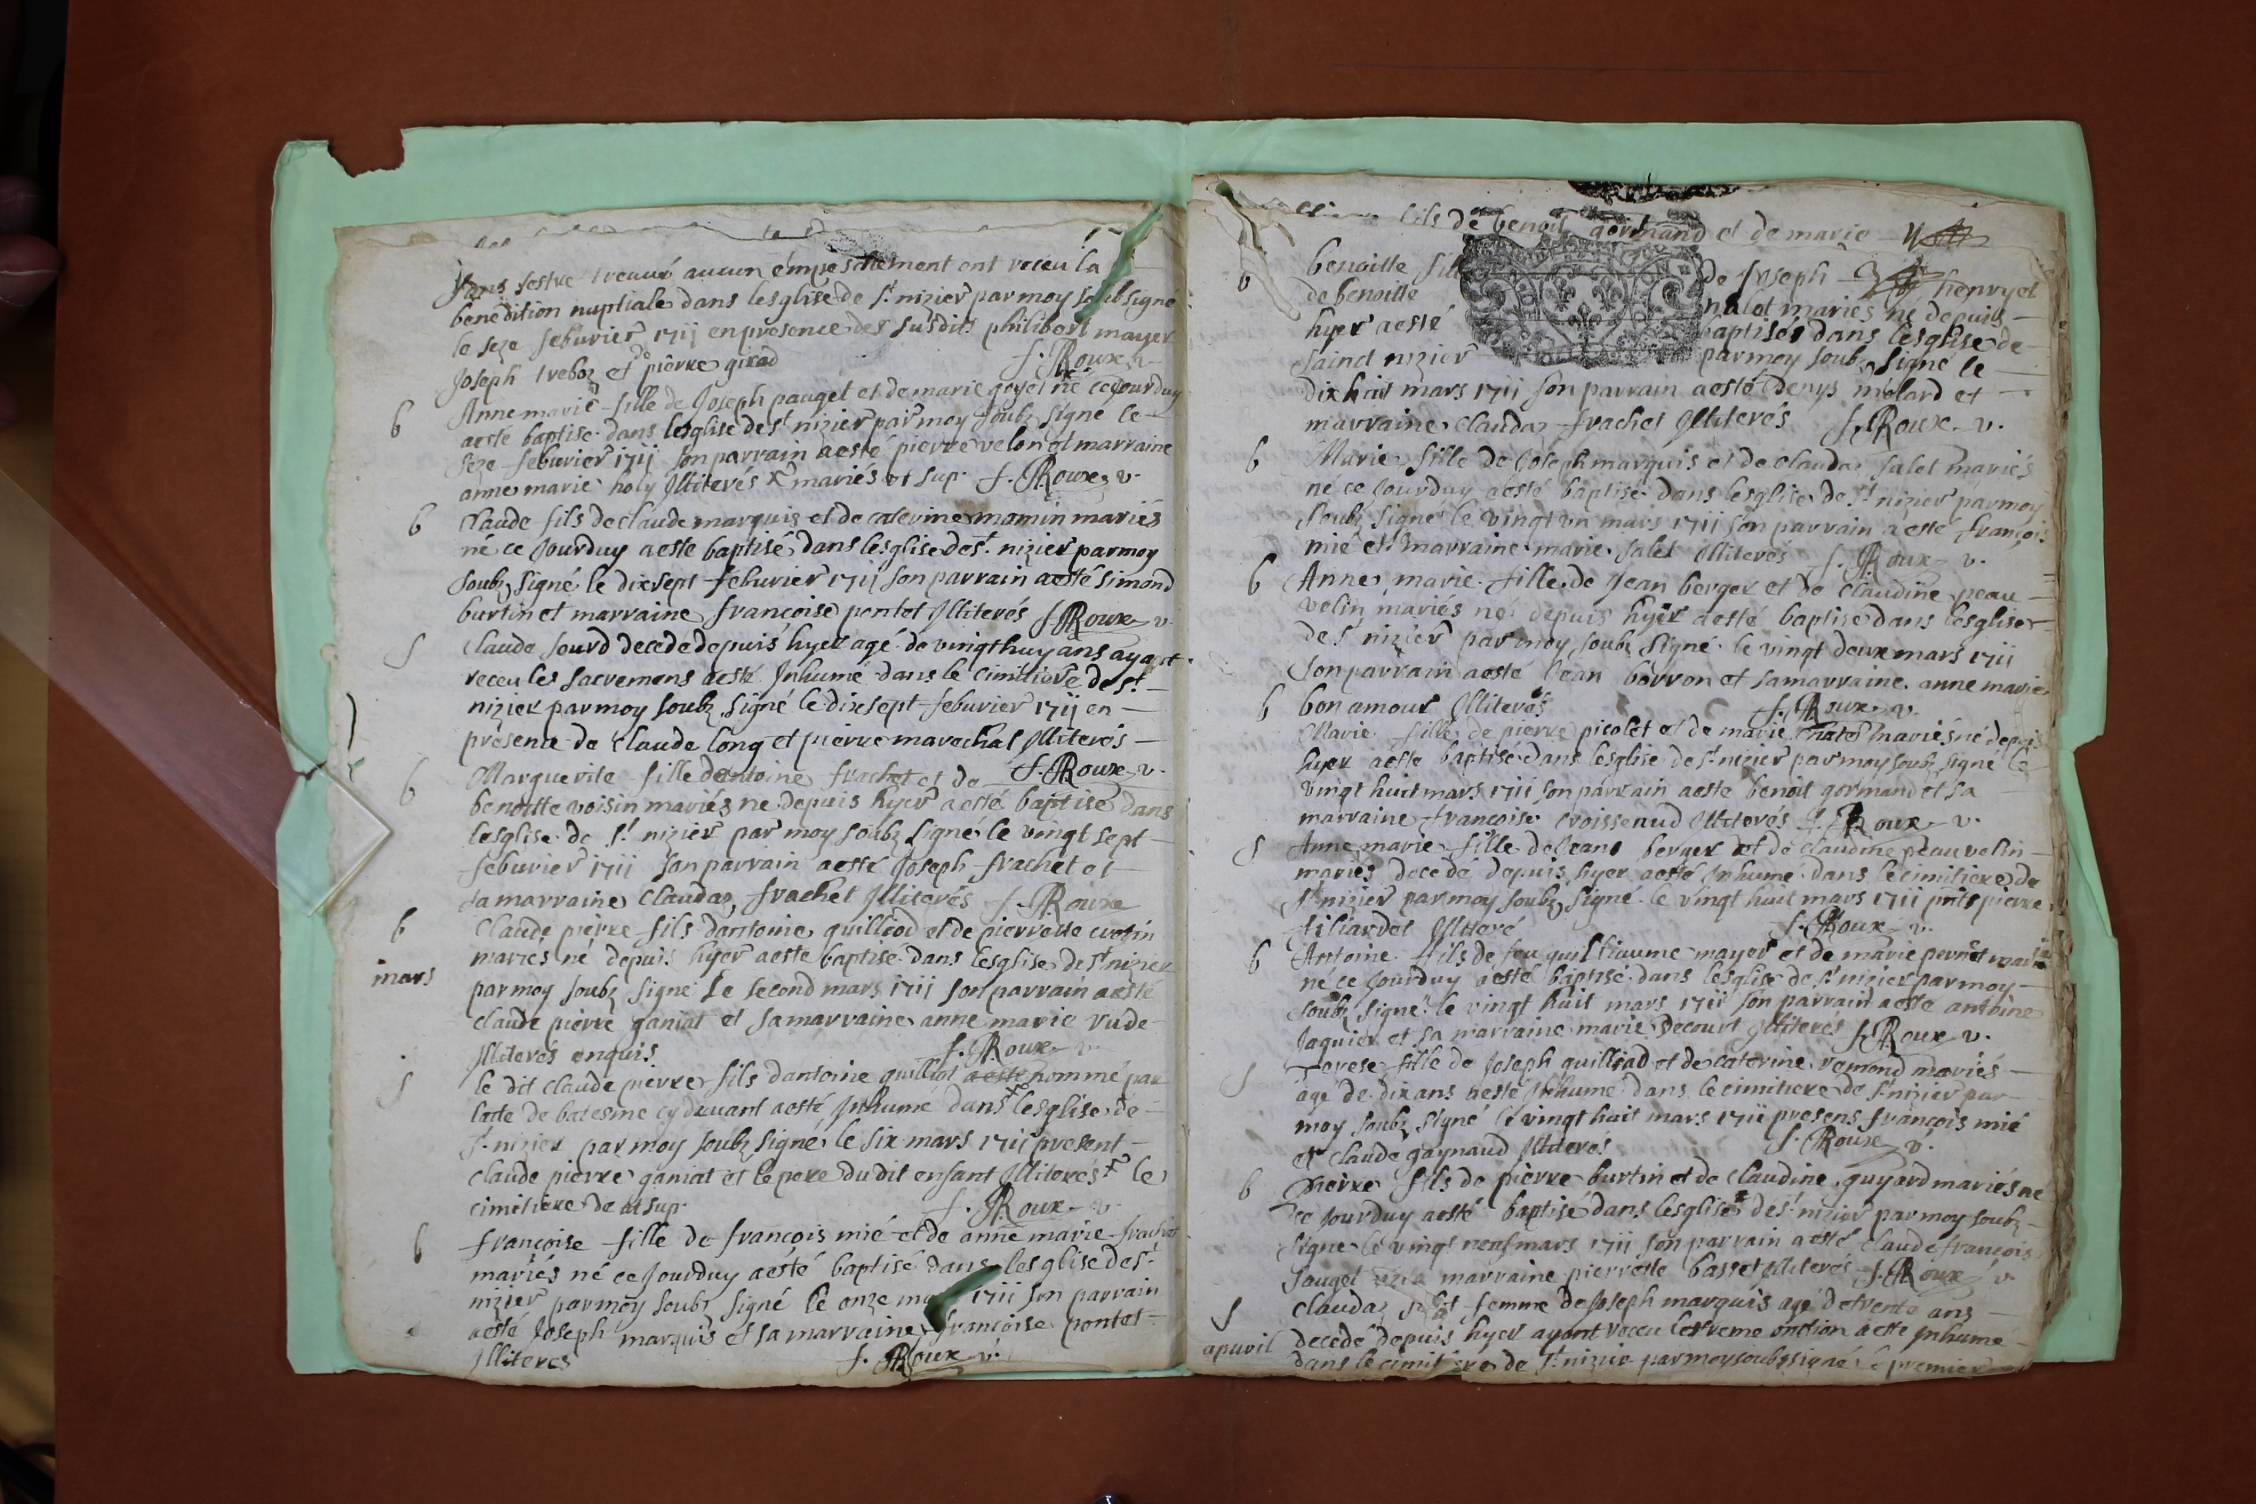 sans sestre treuué aucun émpeschement ont receu la
benedition nuptiale dans lesglise de st nizier par moy soubsigné
le seze feburier 1711 en presence des susdits philibert mayer
Joseph treboz et pierre girad f. Roux v.
b Anne marie fille de Joseph pauget et de marie goyet né ce jourduy
aesté baptisé dans lesglise de st nizier par moy soubz signé le
seze feburier 1711 son parrain aesté pierre velon et marraine
anne marie holy Illiterés mariés et sup. f. Roux v.
b Claude fils de claude marquis et de caterine momin mariés
né ce Jourduy aesté baptisé dans lesglise de st nizier par moy
soubz signé le dixsept feburier 1711 son parrain aesté simond
burtin et marraine françoise pontet Illiterés f. Roux v.
S Claude sourd decede depuis hyer agé de vingthuy ans ayant
receu les sacremens aesté Inhumé dans le cimitiere de st
nizier par moy soubz signé le dixsept feburier 1711 en
présence de claude long et pierre marechal Illiterés
f. Roux v.
b Marguerite fille dantoine frachet et de
benoitte voisin mariés né depuis hyer aesté baptisé dans
lesglise de st nizier par moy soubz signé le vingt sept
feburier 1711 son parrain aesté Joseph frachet et
sa marraine Claudaz frachet Illiterés f. Roux
b Claude pierre fils dantoine quilliod et de pierrette
mariés né depuis hyer aesté baptisé dans lesglise de st nizier
mars par moy soubz signé le second mars 1711 son parrain aesté
claude pierre ganiat et sa marraine anne marie rude
Illiterés enquis f. Roux v.
S le dit claude pierre fils dantoine quilliot aesté nommé par
lacte de batesme cy deuant aesté Inhumé dans lesglise de
st nizier par moy soubz signé le six mars 1711 present
claude pierre ganiat et le pere du dit enfant Illiterés le
cimitiere de et sup. f. Roux v.
b françoise fille de françois mié et de anne marie frachet
mariés né ce Jourduy aesté baptisé dans lesglise de st
nizier par moy soubz signé le onze 1711 son parrain
aesté Joseph marquis et sa marraine françoise pontet
Illiterés f. Roux v.
fils de benoit gormand et de marie
b benoitte de Joseph henry et
de benoitte nalot mariés né depuis
hyer aesté baptisés dans lesglise de
sainct nizier par moy soubz signé le
dix huit mars 1711 son parrain aesté denys molard et
marraine claudaz frachet Illiterés f. Roux v.
b Marie fille de Joseph marquis et de claudaz salet mariés
né ce Jourduy aesté baptisé dans lesglise de st nizier par moy
soubz signé le vingt un mars 1711 son parrain aesté françois
mié et marraine marie salet Illiterés f. Roux v.
b Anne marie fille de Jean berger et de claudine peau
velin mariés né depuis hyer aesté baptisé dans lesglise
de st nizier par moy soubz signé le vingt deux mars 1711
son parrain aesté Jean borron et sa marraine anne marie
bon amour Illiterés f. Roux v.
b Marie fille de pierre picolet et de marie mariés né depuis
hyer aesté baptisé dans lesglise de st nizier par moy soubz signé le
vingt huit mars 1711 son parrain aesté benoit gormand et sa
marraine francoise croissenud Illiterés f. Roux v.
S Anne marie fille de Jean berger et de claudine peauvelin
mariés decedé depuis hyer aesté Inhumé dans le cimitiere de
st nizier par moy soubz signé le vingt huit mars 1711 pnts pierre
tiliardet Illiteré f. Roux v.
b Antoine fils de feu guilliaume mayer et de marie pernet mariés
né ce Jourduy aesté baptisé dans lesglise de st nizier par moy
soubz signé le vingt huit mars 1711 son parrain aesté antoine
Jaquier et sa marraine marie decourt Illiterés f. Roux v.
S Terese fille de Joseph quilliad et de caterine remond mariés
agé de dix ans aesté Inhumé dans le cimitiere de st nizier par
moy soubz signé le vingt huit mars 1711 presens françois mié
et claude gaynaud Illiterés f. Roux v.
b pierre fils de pierre burtin et de claudine guyard mariés né
ce Jourduy aesté baptisé dans lesglise de st nizier par moy soubz
signé le vingt neuf mars 1711 son parrain aesté claude françois
sauget marraine pierrette basset Illiterés f. Roux v.
S claudaz salet femme de Joseph marquis agé de trente ans
apuril decedé depuis hyer ayant receu lestreme onction aesté Inhumé
dans le cimitiere de st nizier par moy soubz signé le premier